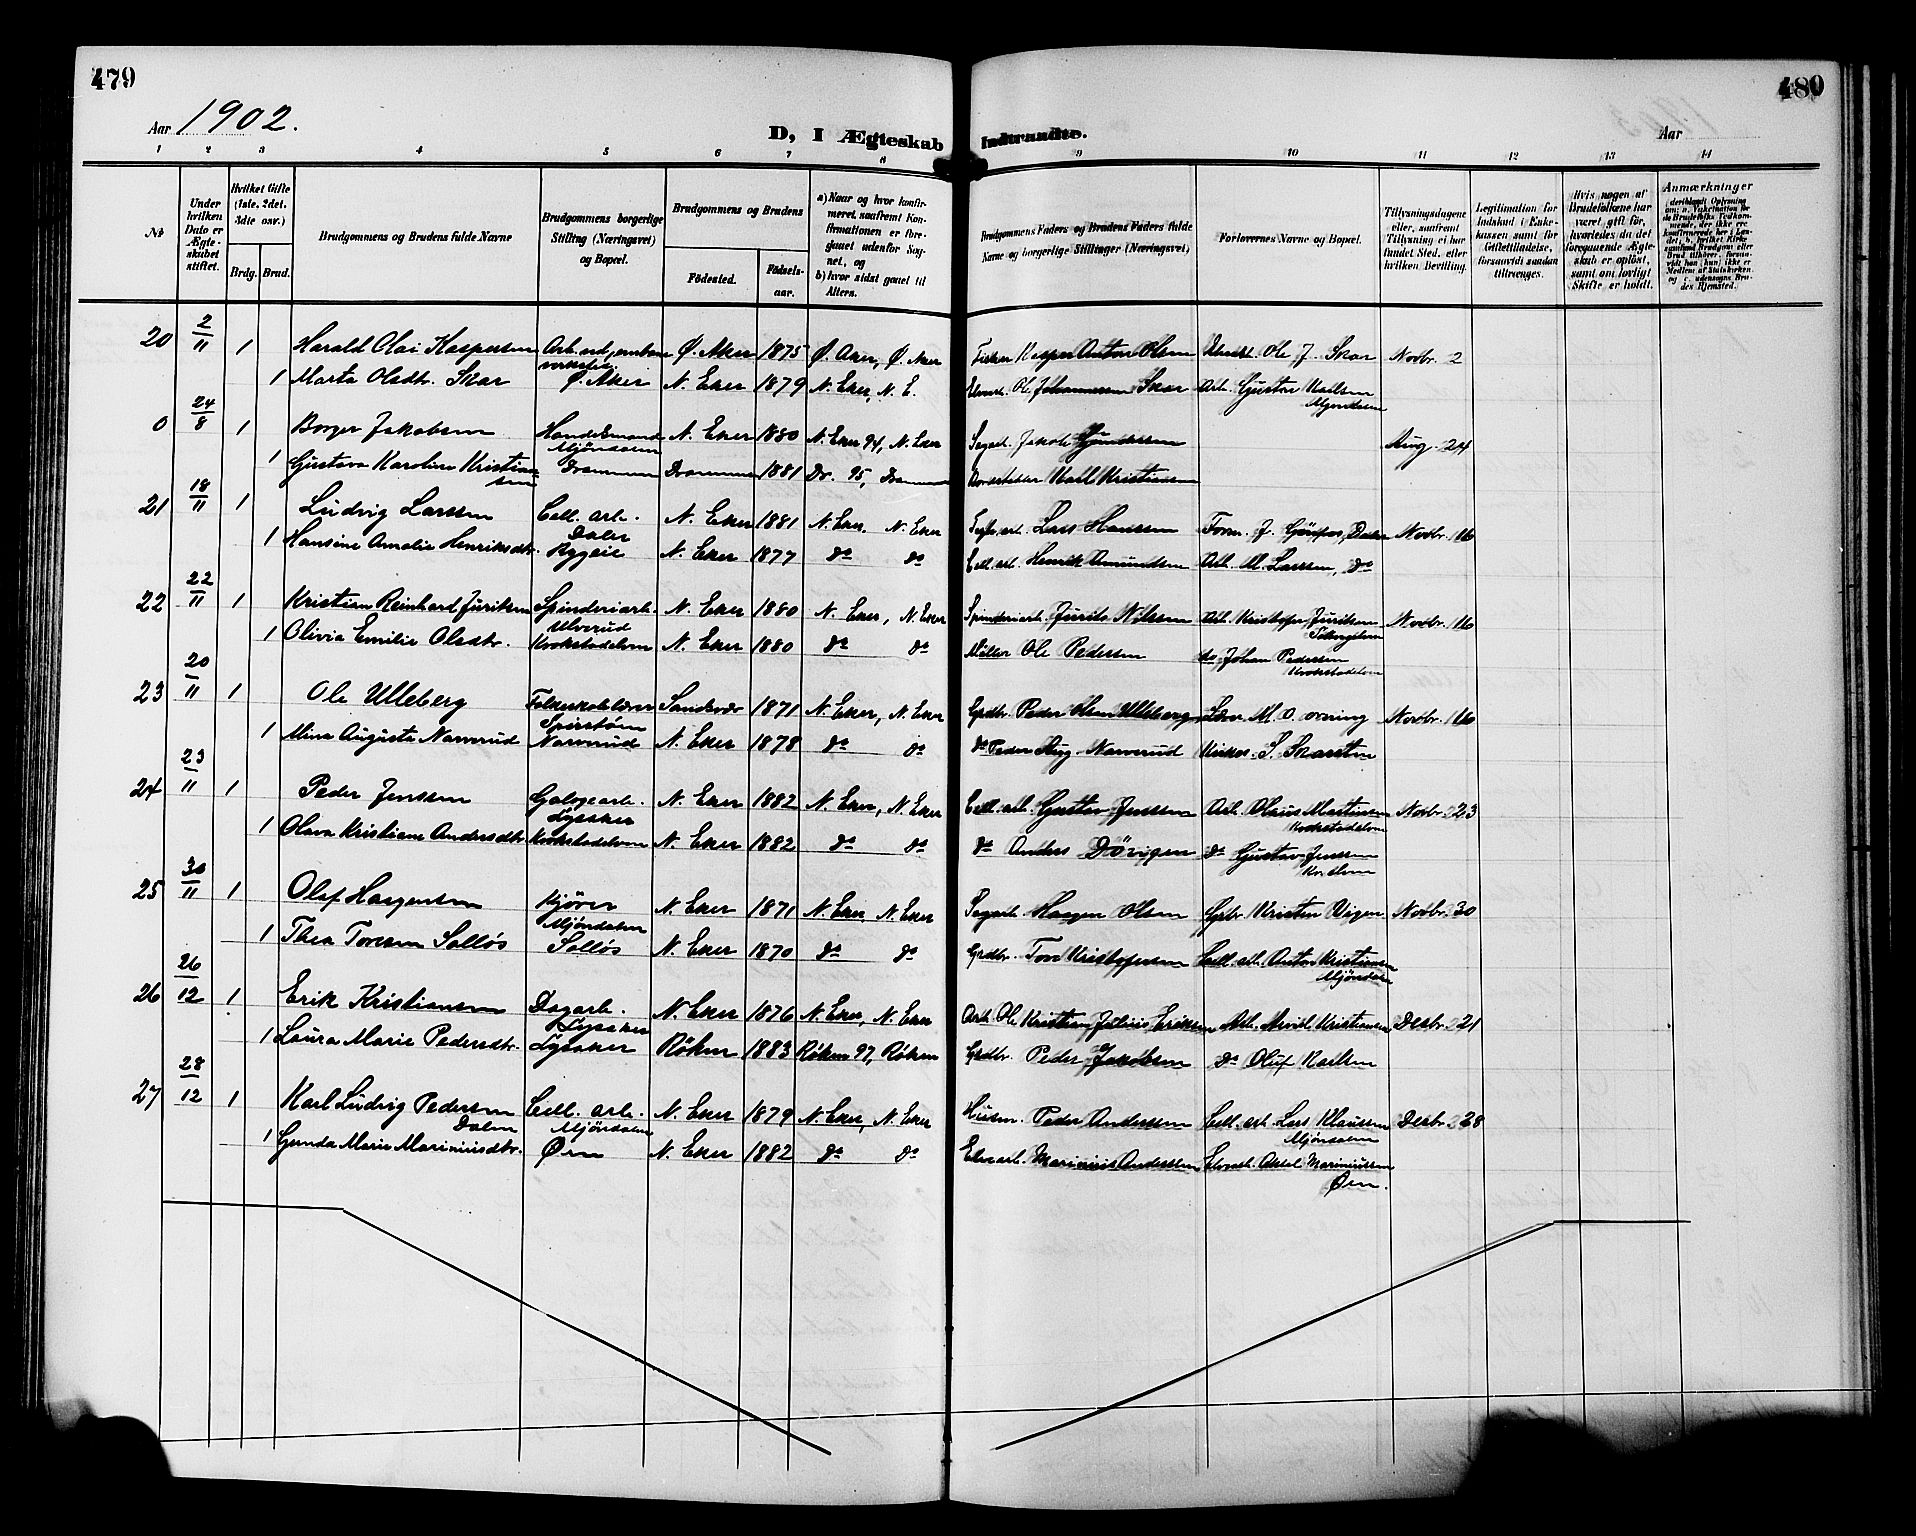 479
480
Aar 1902.
D, I Ægteskab Indtraadte.
Aar
1 2 3 4 5 6 7 8 9 10 11 12 13 14
No
Under hvilken Dato er Ægteskabet stiftet.
Hvilket Gifte (1ste, 2det, 3die osv.)
Brdg. Brud.
Brudgommens og Brudens fulde Navne
Brudgommens borgerlige Stilling (Næringsvei) og Bopæl.
Brudgommens og Brudens
Födested.
Födselsaar.
a) Naar og hvor konfirmeret, saafremt Konfirmationen er foregaaet udenfor Sognet, og
b) hvor sidst gaaet til Alters.
Brudgommens Faders og Brudens Faders fulde Navne og borgerlige Stillinger (Næringsvei)
Forlovernes Navne og Bopæl.
Tillysningsdagene eller, saafremt Tillysning ei har fundet Sted, efter hvilken Bevilling.
Legitimation for Indskud i Enkekassen samt for Giftetilladelse, forsaavidt saadan tiltrænges.
Hvis nogen af Brudefolkene har været gift før, hvorledes da det foregaaende Ægteskab er opløst, samt om lovligt Skifte er holdt.
Anmærkninger
20 2/11 1 Harald Olai Kaspersen Arb. ved jernbane Ø. Aker 1875 Ø. Aker, Ø. Aker Fisker Kasper Anton Olsen Ole J. Skar Novbr. 2
virksh.
1 Marta Olsdtr. Skar Ø. Aker N. Eker 1879 N. Eker, N. E. Ole Johannessen Skar Arb. Gustav Karlsen
Mjøndalen
0 24/8 1 Borger Jakobsen Handelsmand N. Eker 1880 N. Eker 94, N. Eker Sagarb. Jakob Gundersen Aug. 24
Mjöndalen
1 Gustava Karoline Kristiansen Drammen Drammen 1881 Dr. 95, Drammen Karl Kristiansen
21 18/11 1 Ludvig Larssen Cell. arb. N. Eker 1881 N. Eker, N. Eker Lars Hanssen Form. J. Novbr. 16
Daler
1 Hansine Amalie Henriksdtr. Ryggeie N. Eker 1877 do do Cell. arb. Henrik Amundsen Arb. M. Larssen, do
22 22/11 1 Kristian Reinhard Juriksen Spinderiarb. N. Eker 1880 N. Eker, N. Eker Spinderiarb. Jurik Nilssen Arb. Kristofer Juriksen Novbr. 16
Ulverud
1 Olivia Emilie Olsdtr. Krokstadelven N. Eker 1880 do do Möller Ole Pedersen do Johan Pedersen
Krokstadelven
23 20/11 1 Ole Ulleberg Folkeskolelærer Sandsvær 1871 N. Eker, N. Eker Grdbr. Peder Olsen Ulleberg Lærer M. O. Novbr. 16
1 Mina Augusta Narverud Narverud N. Eker 1878 do do do Peder Aug. Narverud Kirkes. S. Skarsten
24 23/11 1 Peder Jenssen Galogearb. N. Eker 1882 N. Eker, N. Eker Cell. arb. Gustav Jenssen Arb. Olaus Martinsen Novbr. 23
Lysaker Krokstadelven
1 Olava Kristiane Andersdtr. Krokstadelven N. Eker 1882 do do do Anders Dövigen do Gustav Jenssen
25 30/11 1 Olaf Haagensen Kjører N. Eker 1871 N. Eker N. Eker Sagarb. Haagen Olsen Grbr. Kristen Vigen Novbr. 30
Mjöndalen
1 Thea Toresen Solløs Solløs N. Eker 1870 do do Grdbr. Tore Kristofersen Cell. arb. Anton Kristiansen
Mjöndalen
26 26/12 1 Erik Kristiansen Dagarb. N. Eker 1876 N. Eker, N. Eker Arb. Ole Kristian Julius Eriksen Arb. Arvid Kristiansen Desbr. 21
Lysaker
1 Laura Marie Pedersdtr. Lysaker Röken 1883 Röken 97, Röken Grdbr. Peder Jakobsen do Oluf Karlsen
27 28/12 1 Karl Ludvig Pedersen Cell. arb. N. Eker 1879 N. Eker, N. Eker Husm. Peder Andersen Cell. arb. Lars Klaussen Desbr. 28
Dalen Mjöndalen Mjöndalen
1 Gunda Marie Mariniusdtr. Øen N. Eker 1882 do do Elvearb. Marinius Anderssen Elvearb. Aksel Mariniussen
Øen.